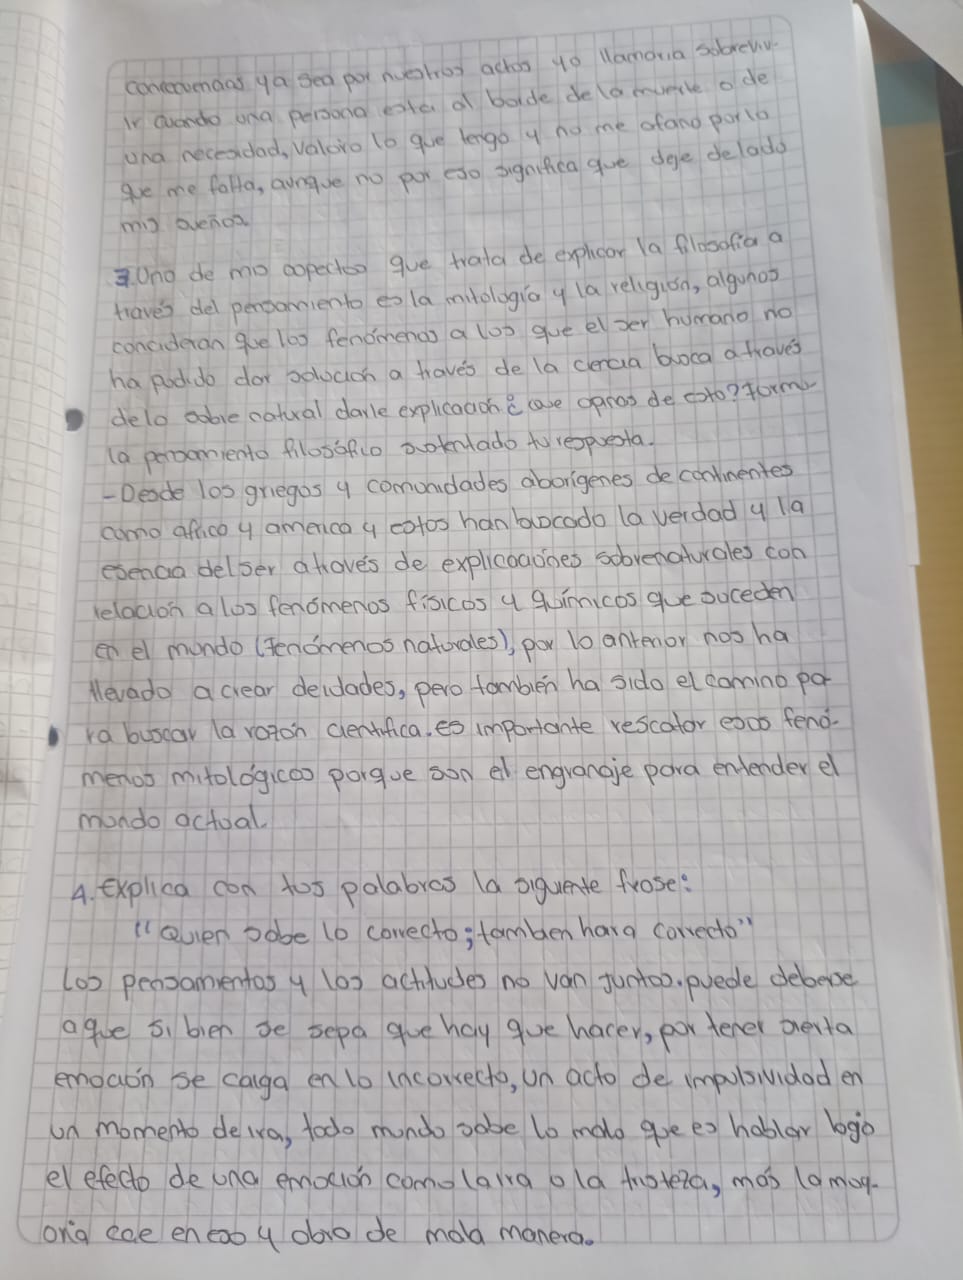 consecuencias ya sea por nuestros actos yo llamaria sobreviv-
ir cuando una persona esta al borde de la muerte o de
una necesidad, valoro lo que tengo y no me afano por lo
que me falta, aunque no por eso significa que deje de lado
mis sueños
3. Uno de mis aspectos que trata de explicar la filosofía a
través del pensamiento es la mitología y la religión, algunos
concideran que los fenómenos a los que el ser humano no
ha podido dar solución a través de la ciencia busca a través
de lo sobre natural darle explicación ¿ que opinas de esto? Formu-
la pensamiento filosófico sustentado tu respuesta.
- Desde los griegos y comunidades aborígenes de continentes
como africa y america y estos han buscado la verdad y la
esencia del ser através de explicaciones sobrenaturales con
relación a los fenómenos físicos y químicos que suceden
en el mundo (Fenómenos naturales), por lo anterior nos ha
llevado a crear deidades, pero también ha sido el camino pa-
ra buscar la razón cientifica. es importante rescatar esos fenó-
menos mitológicos porque son el engranaje para entender el
mundo actual
4. Explica con tus palabras la siguiente frase:
"Quien sabe lo correcto; tambien hara correcto"
Los pensamientos y las actitudes no van juntos. puede deberse
a que si bien se sepa que hay que hacer, por tener cierta
emoción se caiga en lo incorrecto, un acto de impulsividad en
un momento de ira, todo mundo sabe lo malo que es hablar bajo
el efecto de una emoción como la ira o la tristeza, más la may-
oria cae en eso y obra de mala manera.